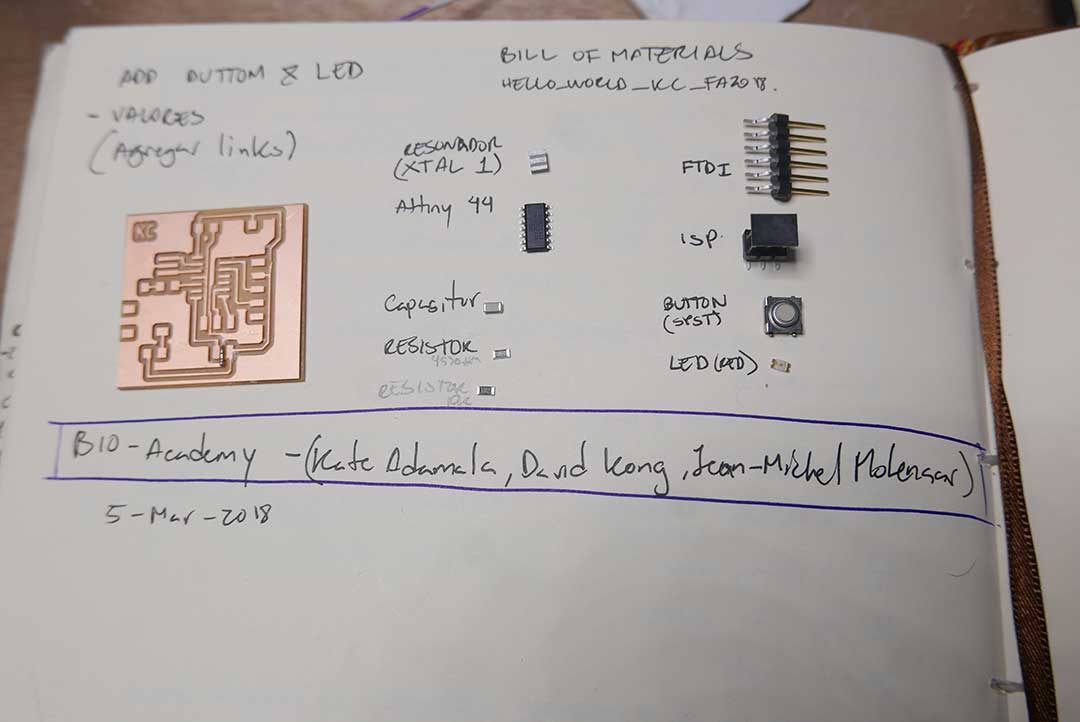 ADD BUTTOM & LED
- VALORES
(Agregar links)
BILL OF MATERIALS
HELLO_WORLD_KC_FA2018.
RESONADOR
(XTAL 1)
Attiny 44
Capasitor
RESISTOR
RESISTOR
10K
FTDI
ISP.
BUTTON
(SPST)
LED (RED)
KC
BIO-Academy -(Kate Adamala, David Kong, Jean-Michel Molenaar)
5-Mar-2018